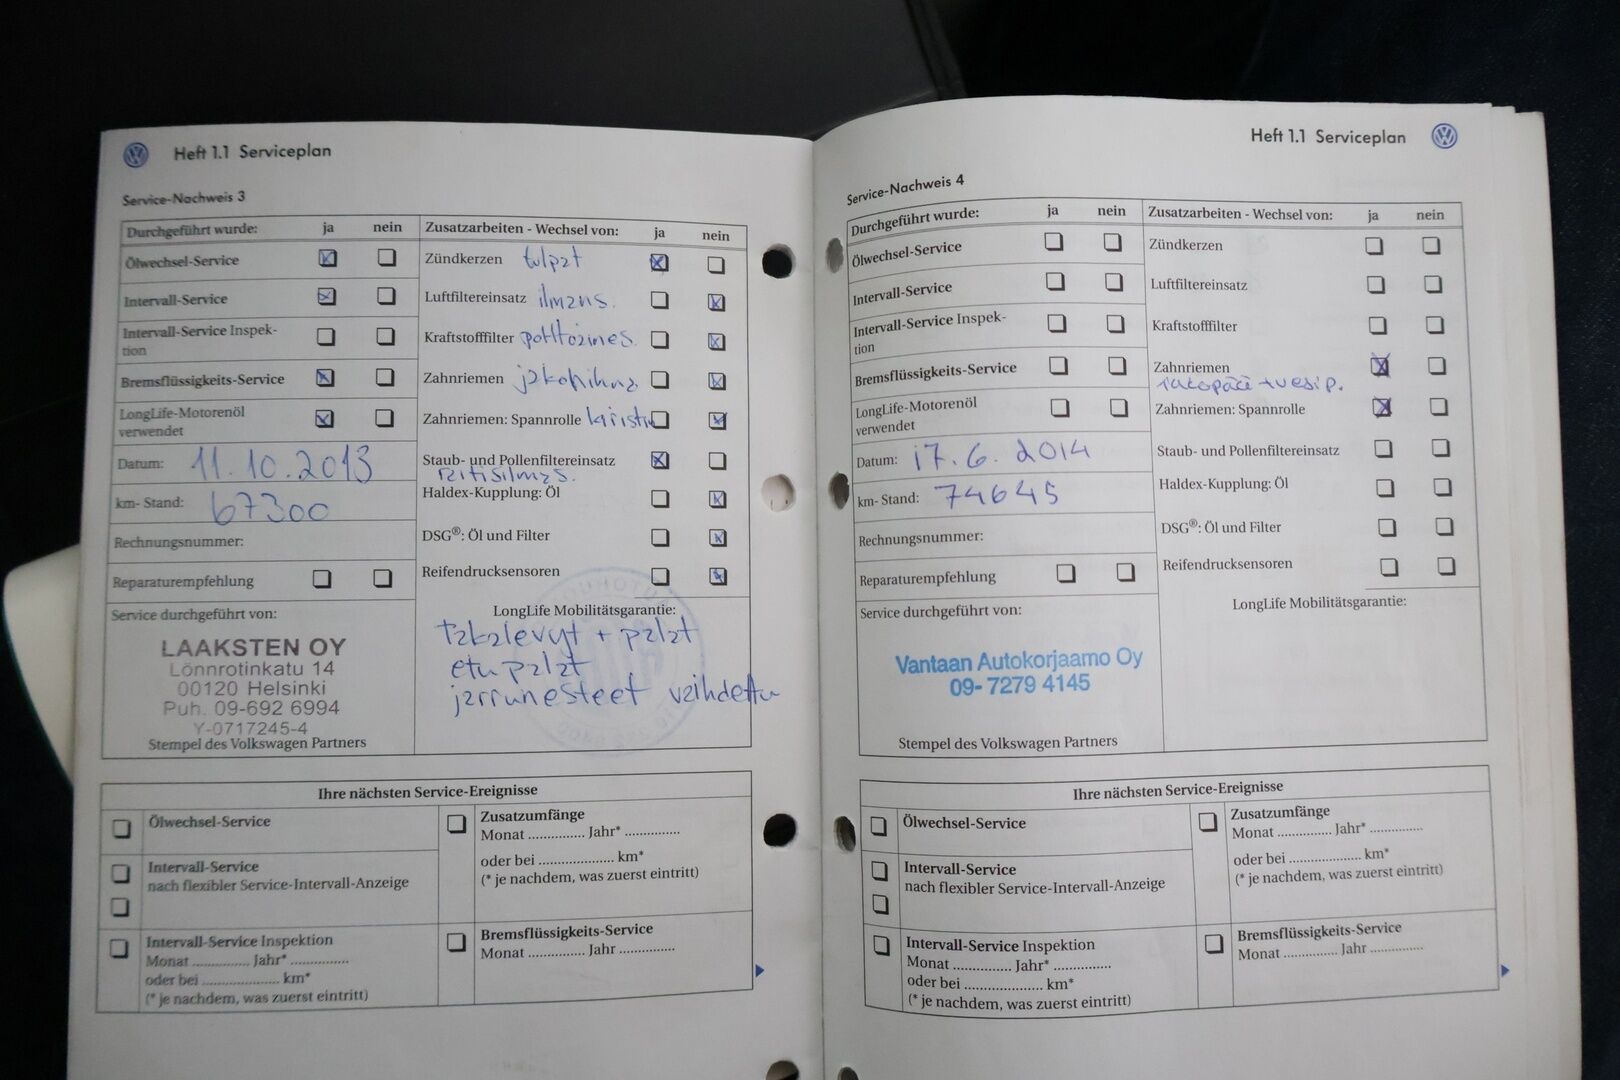 Heft 1.1 Serviceplan
Service-Nachweis 3
Durchgeführt wurde: ja nein
Ölwechsel-Service
Intervall-Service
Intervall-Service Inspek-
tion
Bremsflüssigkeits-Service
LongLife-Motorenöl
verwendet
Datum: 11.10.2013
km- Stand: 67300
Rechnungsnummer:
Reparaturempfehlung
Service durchgeführt von:
LAAKSTEN OY
Lönnrotinkatu 14
00120 Helsinki
Puh. 09-692 6994
Y-0717245-4
Stempel des Volkswagen Partners
Zusatzarbeiten - Wechsel von: ja nein
Zündkerzen tulpat
Luftfiltereinsatz ilmans.
Kraftstofffilter polttoaines.
Zahnriemen jakohihna
Zahnriemen: Spannrolle kiristin
Staub- und Pollenfiltereinsatz
raitisilmas.
Haldex-Kupplung: Öl
DSG®: Öl und Filter
Reifendrucksensoren
LongLife Mobilitätsgarantie:
takalevyt + palat
etupalat
jarrunesteet vaihdettu
Ihre nächsten Service-Ereignisse
Ölwechsel-Service
Intervall-Service
nach flexibler Service-Intervall-Anzeige
Intervall-Service Inspektion
Monat ............. Jahr* .............
oder bei .................... km*
(* je nachdem, was zuerst eintritt)
Zusatzumfänge
Monat ............. Jahr* .............
oder bei .................... km*
(* je nachdem, was zuerst eintritt)
Bremsflüssigkeits-Service
Monat ............. Jahr .............
Heft 1.1 Serviceplan
Service-Nachweis 4
Durchgeführt wurde: ja nein
Ölwechsel-Service
Intervall-Service
Intervall-Service Inspek-
tion
Bremsflüssigkeits-Service
LongLife-Motorenöl
verwendet
Datum: 17.6.2014
km- Stand: 74645
Rechnungsnummer:
Reparaturempfehlung
Service durchgeführt von:
Vantaan Autokorjaamo Oy
09- 7279 4145
Stempel des Volkswagen Partners
Zusatzarbeiten - Wechsel von: ja nein
Zündkerzen
Luftfiltereinsatz
Kraftstofffilter
Zahnriemen
jakopää + vesip.
Zahnriemen: Spannrolle
Staub- und Pollenfiltereinsatz
Haldex-Kupplung: Öl
DSG®: Öl und Filter
Reifendrucksensoren
LongLife Mobilitätsgarantie:
Ihre nächsten Service-Ereignisse
Ölwechsel-Service
Intervall-Service
nach flexibler Service-Intervall-Anzeige
Intervall-Service Inspektion
Monat ............. Jahr* .............
oder bei .................... km*
(* je nachdem, was zuerst eintritt)
Zusatzumfänge
Monat ............. Jahr* .............
oder bei .................... km*
(* je nachdem, was zuerst eintritt)
Bremsflüssigkeits-Service
Monat ............. Jahr .............